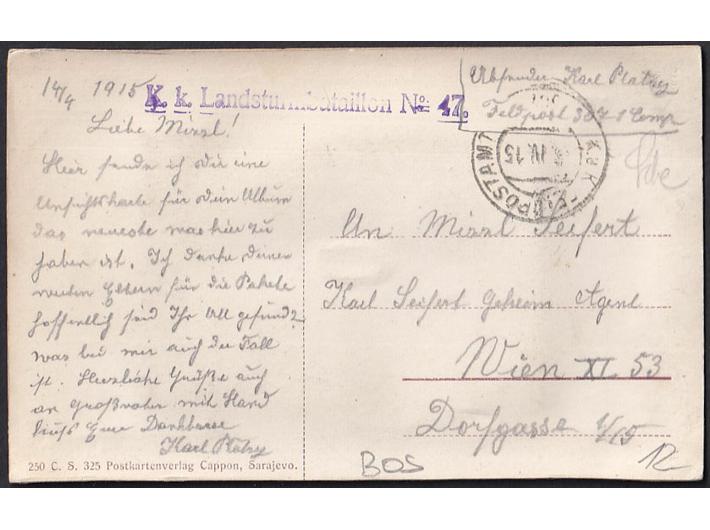 14/4 1915
K. k. Landsturmbataillon No. 47.
Liebe Mizzl!
Hier sende ich dir eine
Ansichtskarte für dein Album
das neueste was hier zu
haben ist. Ich danke deinen
werten Eltern für die Pakete
hoffentlich seid Ihr All gesund?
was bei mir auch der Fall
ist. Herzliche Grüße auch
an Großvater mit Hand
kuss Euer Dankbarer
Karl
250 C. S. 325 Postkartenverlag Cappon, Sarajevo.
Absender Karl
Feldpost 387 1 Comp
K.u.K. FELDPOSTAMT
IV. 15
An Mizzl Seifert
Karl Seifert Geheim Agent
Wien XI 53
Dorfgasse 1/15
BOS
12